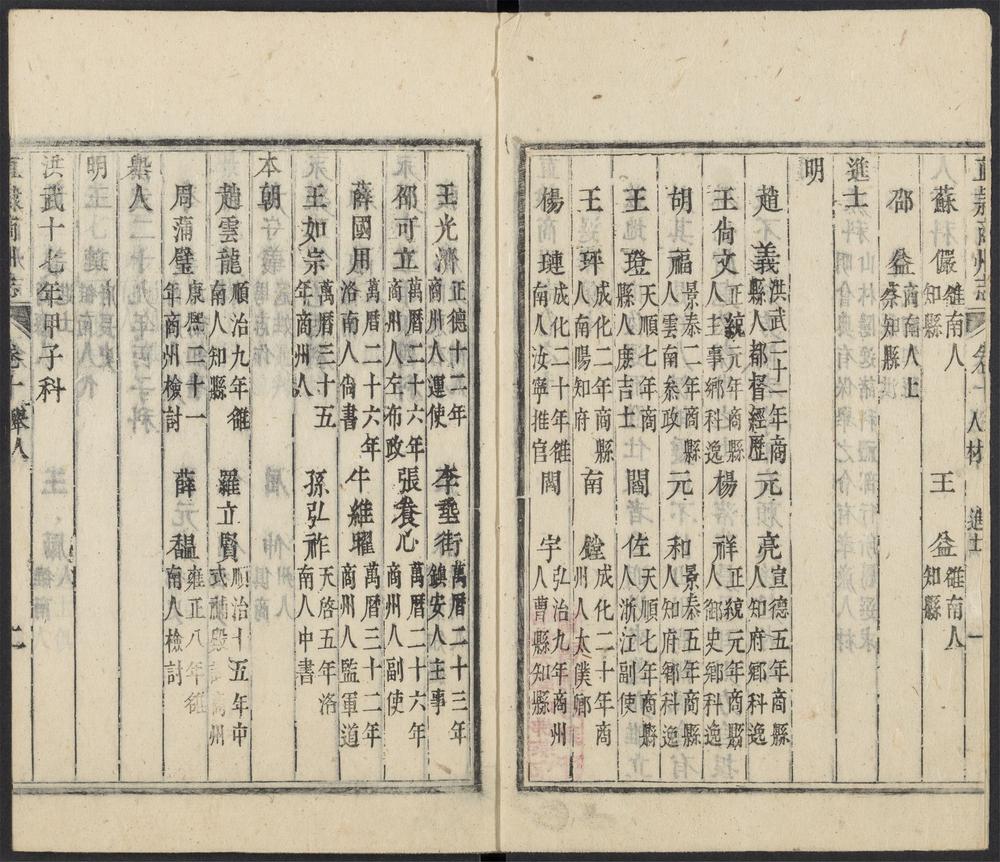 直隸商州志 卷十 人材 進士 一
蘇儼 雒南人知縣 王益 雒南人知縣
邵益 商南人上蔡知縣
進士
明
趙義 洪武二十一年商縣人都督經歷 元亮 宣德五年商縣人知府鄉科逸
王尙文 正統元年商縣人主事鄉科逸 楊祥 正統元年商縣人御史鄉科逸
胡福 景泰二年商縣人雲南叅政 元和 景泰五年商縣人知府鄉科逸
王璒 天順七年商縣人庶吉士 閻佐 天順七年商縣人浙江副使
王玶 成化二年商縣人南陽知府 南鏜 成化二十年商州人太僕卿
楊璉 成化二十年雒南人汝寧推官 閻宇 弘治九年商州人曹縣知縣
王光濟 正德十二年商州人運使 李垂街 萬曆二十三年鎮安人主事
邵可立 萬曆二十六年商州人左布政 張養心 萬曆二十六年商州人副使
薛國用 萬曆二十六年洛南人尙書 牛維曜 萬曆三十二年商州人監軍道
王如宗 萬曆三十五年商州人 孫弘祚 天啓五年洛南人中書
本朝
趙雲龍 順治九年雒南人知縣 羅立賢 順治十五年中式 商州
周蒲璧 康熙二十一年商州檢討 薛元 雍正八年雒南人檢討
舉人
明
洪武十七年甲子科
直隸商州志 卷十 舉人 二